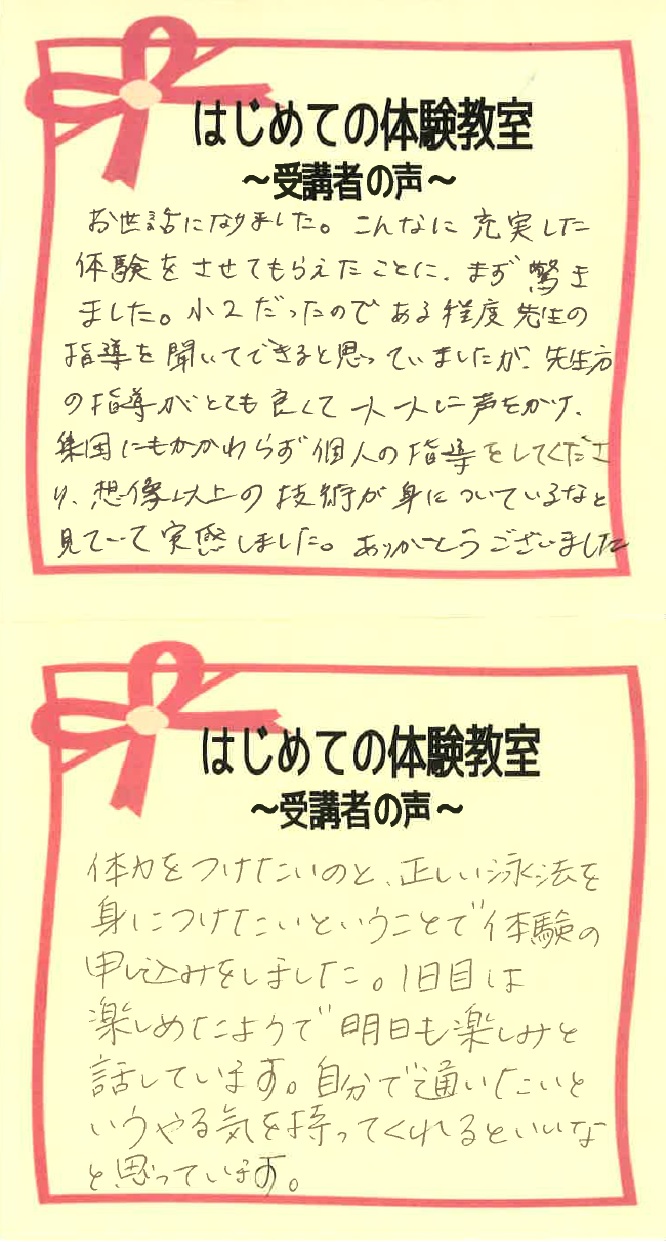 はじめての体験教室
～受講者の声～
お世話になりました。こんなに充実した
体験をさせてもらえたことに、まず驚き
ました。小2だったのである程度先生の
指導を聞いてできると思っていましたが、先生方
の指導がとても良くて一人一人に声をかけ、
集団にもかかわらず個人の指導をしてくださ
り、想像以上の技術が身についているなと
見ていて実感しました。ありがとうございました
はじめての体験教室
～受講者の声～
体力をつけたいのと、正しい泳法を
身につけたいということで体験の
申し込みをしました。1日目は
楽しめたようで明日も楽しみと
話しています。自分で通いたいと
いうやる気を持ってくれるといいな
と思っています。